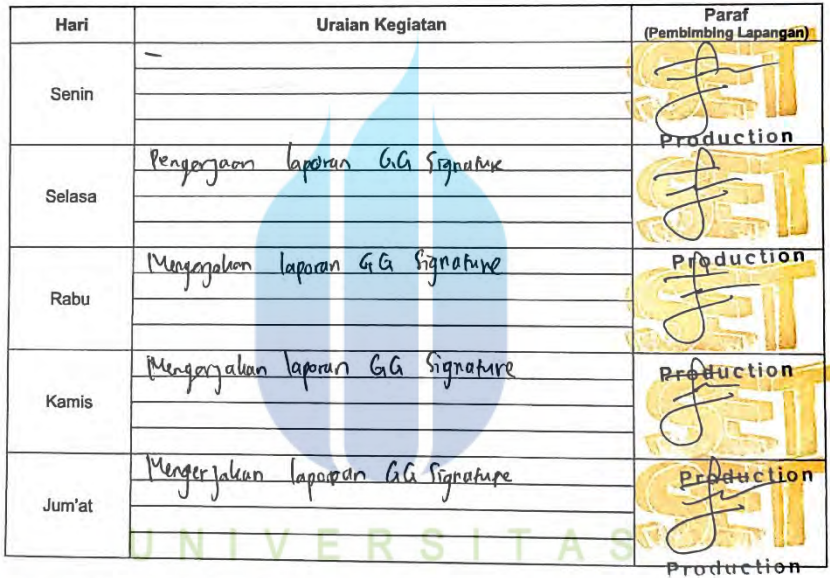 Hari Uraian Kegiatan Paraf
(Pembimbing Lapangan)
Senin –
SET
Production
Selasa Pengerjaan laporan GG Signature
SET
Production
Rabu Mengerjakan laporan GG Signature
SET
Production
Kamis Mengerjakan laporan GG Signature
SET
Production
Jum'at Mengerjakan laporan GG Signature
SET
Production
UNIVERSITAS